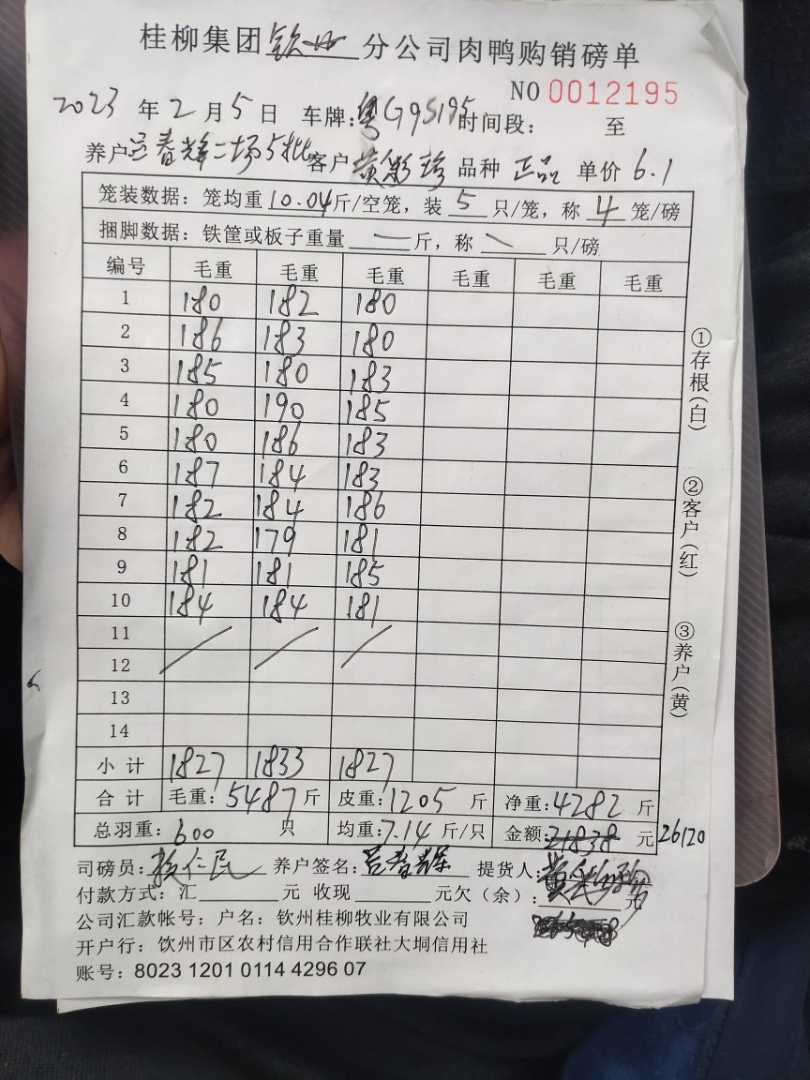 桂柳集团钦州分公司肉鸭购销磅单
NO 0012195
2023年2月5日 车牌:粤G9S195 时间段: 至
养户 春辉二场5批 客户 黄彩珍 品种 正品 单价 6.1
笼装数据: 笼均重10.04斤/空笼, 装5只/笼, 称4笼/磅
捆脚数据: 铁筐或板子重量 — 斤, 称 \ 只/磅
编号 毛重 毛重 毛重 毛重 毛重 毛重
1 180 182 180
2 186 183 180
3 185 180 183
4 180 190 185
5 180 186 183
6 187 184 183
7 182 184 186
8 182 179 181
9 181 181 185
10 184 184 181
11
12
13
14
小计 1827 1833 1827
合计 毛重:5487斤 皮重:1205斤 净重:4282斤
总羽重:600只 均重:7.14斤/只 金额:21838元 26120
司磅员: 仁民 养户签名: 春辉 提货人: 黄
付款方式: 汇 元 收现 元欠(余): 元
公司汇款帐号: 户名: 钦州桂柳牧业有限公司
开户行: 钦州市区农村信用合作联社大垌信用社
账号: 8023 1201 0114 4296 07
①存根(白)
②客户(红)
③养户(黄)